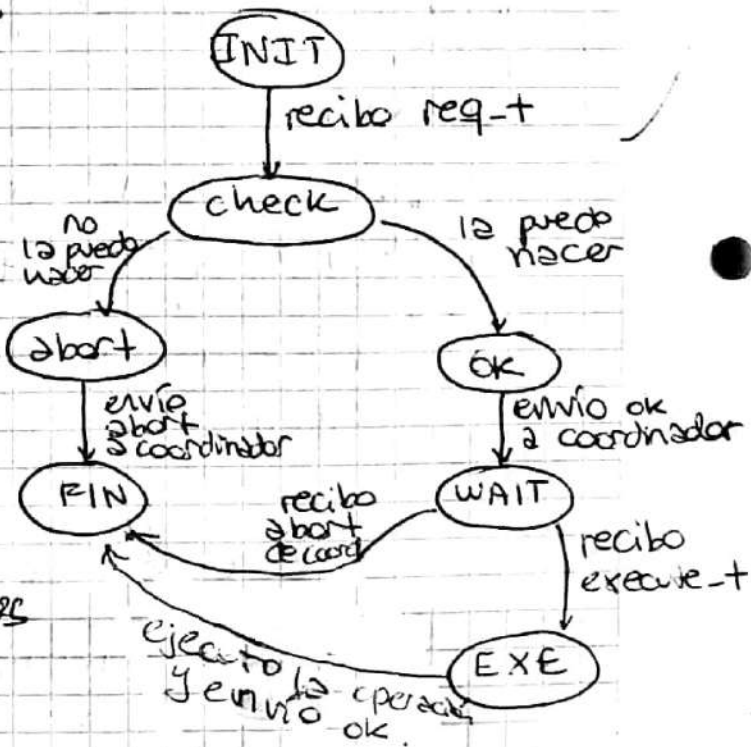 INIT
recibo req_t
check
no
la puedo
hacer
la puedo
hacer
abort
ok
envío
abort
a coordinador
envío ok
a coordinador
FIN
WAIT
recibo
abort
de coord
recibo
execute_t
ejecuto la operación
y envío ok
EXE